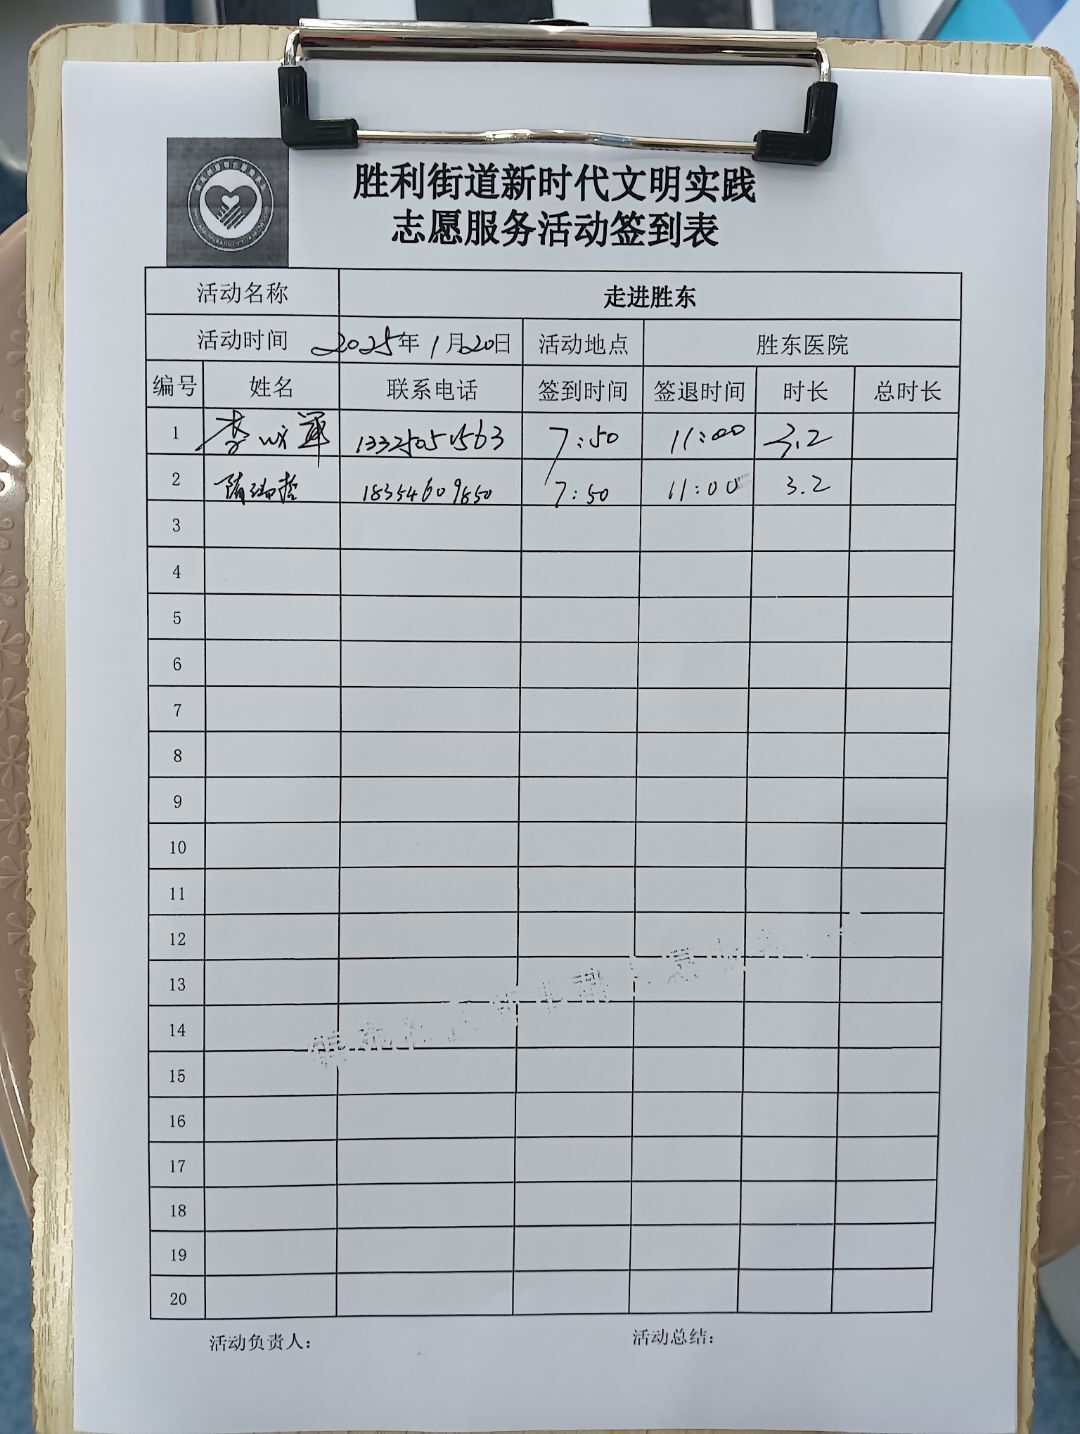 胜利街道新时代文明实践
志愿服务活动签到表
活动名称 走进胜东
活动时间 2025年1月20日 活动地点 胜东医院
编号 姓名 联系电话 签到时间 签退时间 时长 总时长
1 李 军 7:50 11:00 3.2
2 隋瑞哲 18354609850 7:50 11:00 3.2
3
4
5
6
7
8
9
10
11
12
13
14
15
16
17
18
19
20
活动负责人： 活动总结：